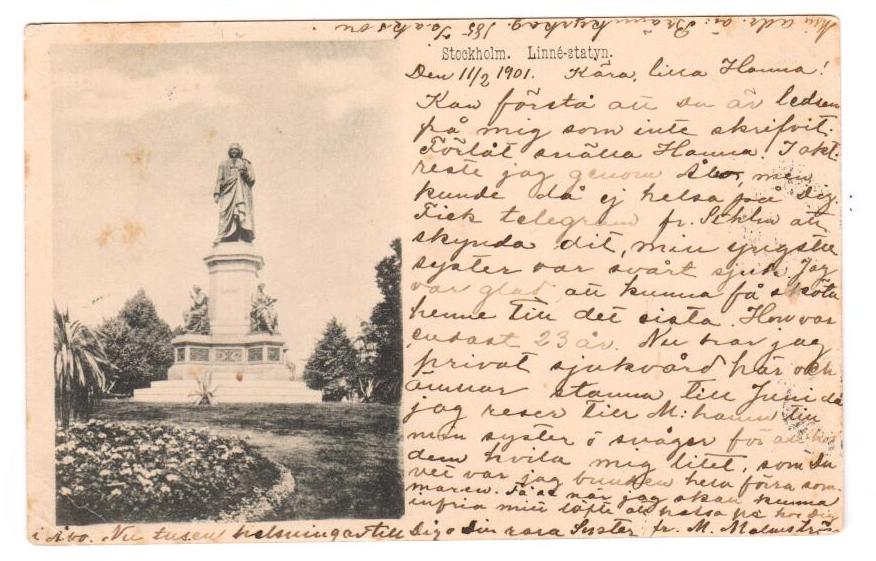 Min adr. är: Brännkyrkag. 185
Stockholm. Linné-statyn.
Den 11/2 1901. Kära, lilla Hanna!
Kan förstå att du är ledsen
på mig som inte skrifvit.
Förlåt snälla Hanna. I okt.
reste jag genom Åbo, men
kunde då ej helsa på Dig.
Fick telegram fr. Sthlm att
skynda dit, min yngsta
syster var svårt sjuk. Jag
var glad att kunna få sköta
henne till det sista. Hon var
endast 23 år. Nu har jag
privat sjukvård här och
ämnar stanna till Juni då
jag reser till M:hamn till
min syster o svåger för att hos
dem hvila mig litet, som Du
vet var jag bunden hela förra som-
maren. Få se när jag skall kunna
infria mitt löfte att helsa på hos Dig
i Åbo. Nu tusen helsningar till Dig o din rara Syster fr. M. Malmström